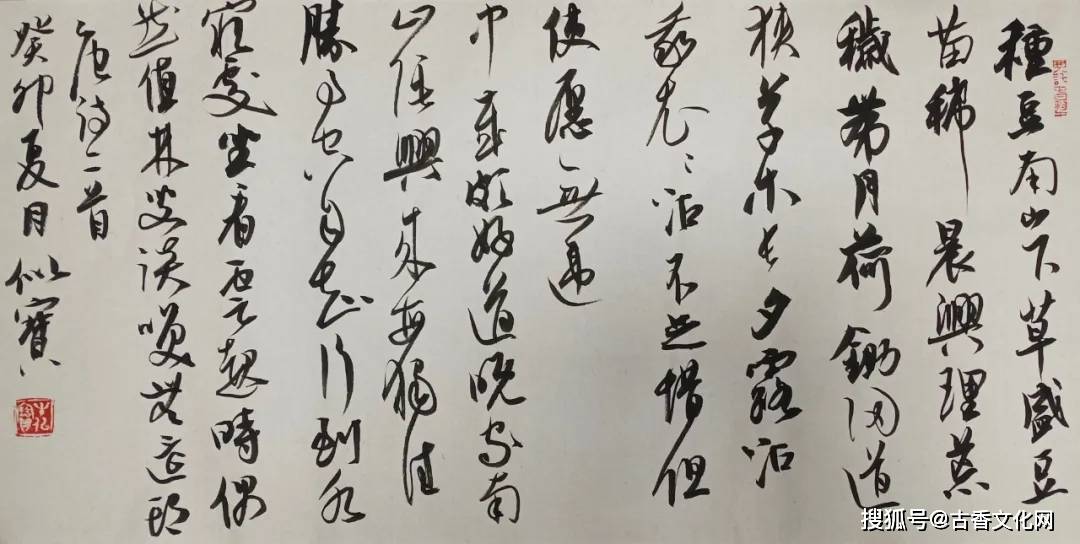 種豆南山下草盛豆
苗稀晨興理荒
穢帶月荷鋤归道
狭草木长夕露沾
我衣〻沾不足惜但
使愿無違
中歲頗好道晚家南
山陲興来每獨往
勝事空自知行到水
窮處坐看雲起時偶
然值林叟談笑無還期
唐诗二首
癸卯夏月似寶
搜狐号@古香文化网